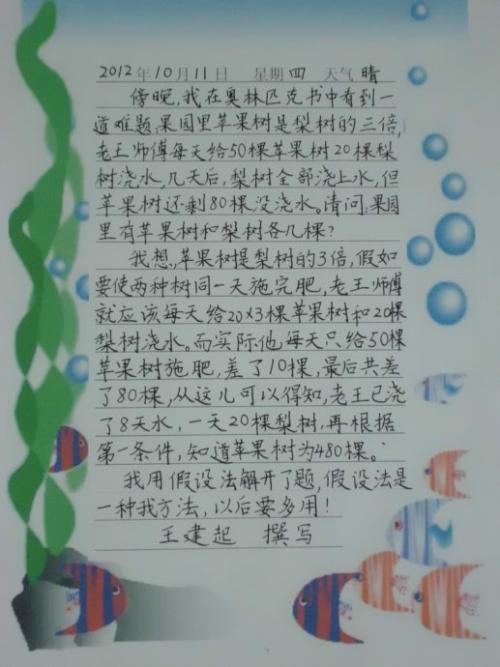 2012年10月11日 星期四 天气晴
傍晚,我在奥林匹克书中看到一
道难题,果园里苹果树是梨树的三倍,
老王师傅每天给50棵苹果树20棵梨
树浇水,几天后,梨树全部浇上水,但
苹果树还剩80棵没浇水。请问:果园
里有苹果树和梨树各几棵?
我想,苹果树是梨树的3倍,假如
要使两种树同一天施完肥,老王师傅
就应该每天给20×3棵苹果树和20棵
梨树浇水。而实际他每天只给50棵
苹果树施肥,差了10棵,最后共差
了80棵,从这儿可以得知,老王已浇
了8天水,一天20棵梨树,再根据
第一条件,知道苹果树为480棵。
我用假设法解开了题,假设法是
一种找方法,以后要多用!
王建起 撰写